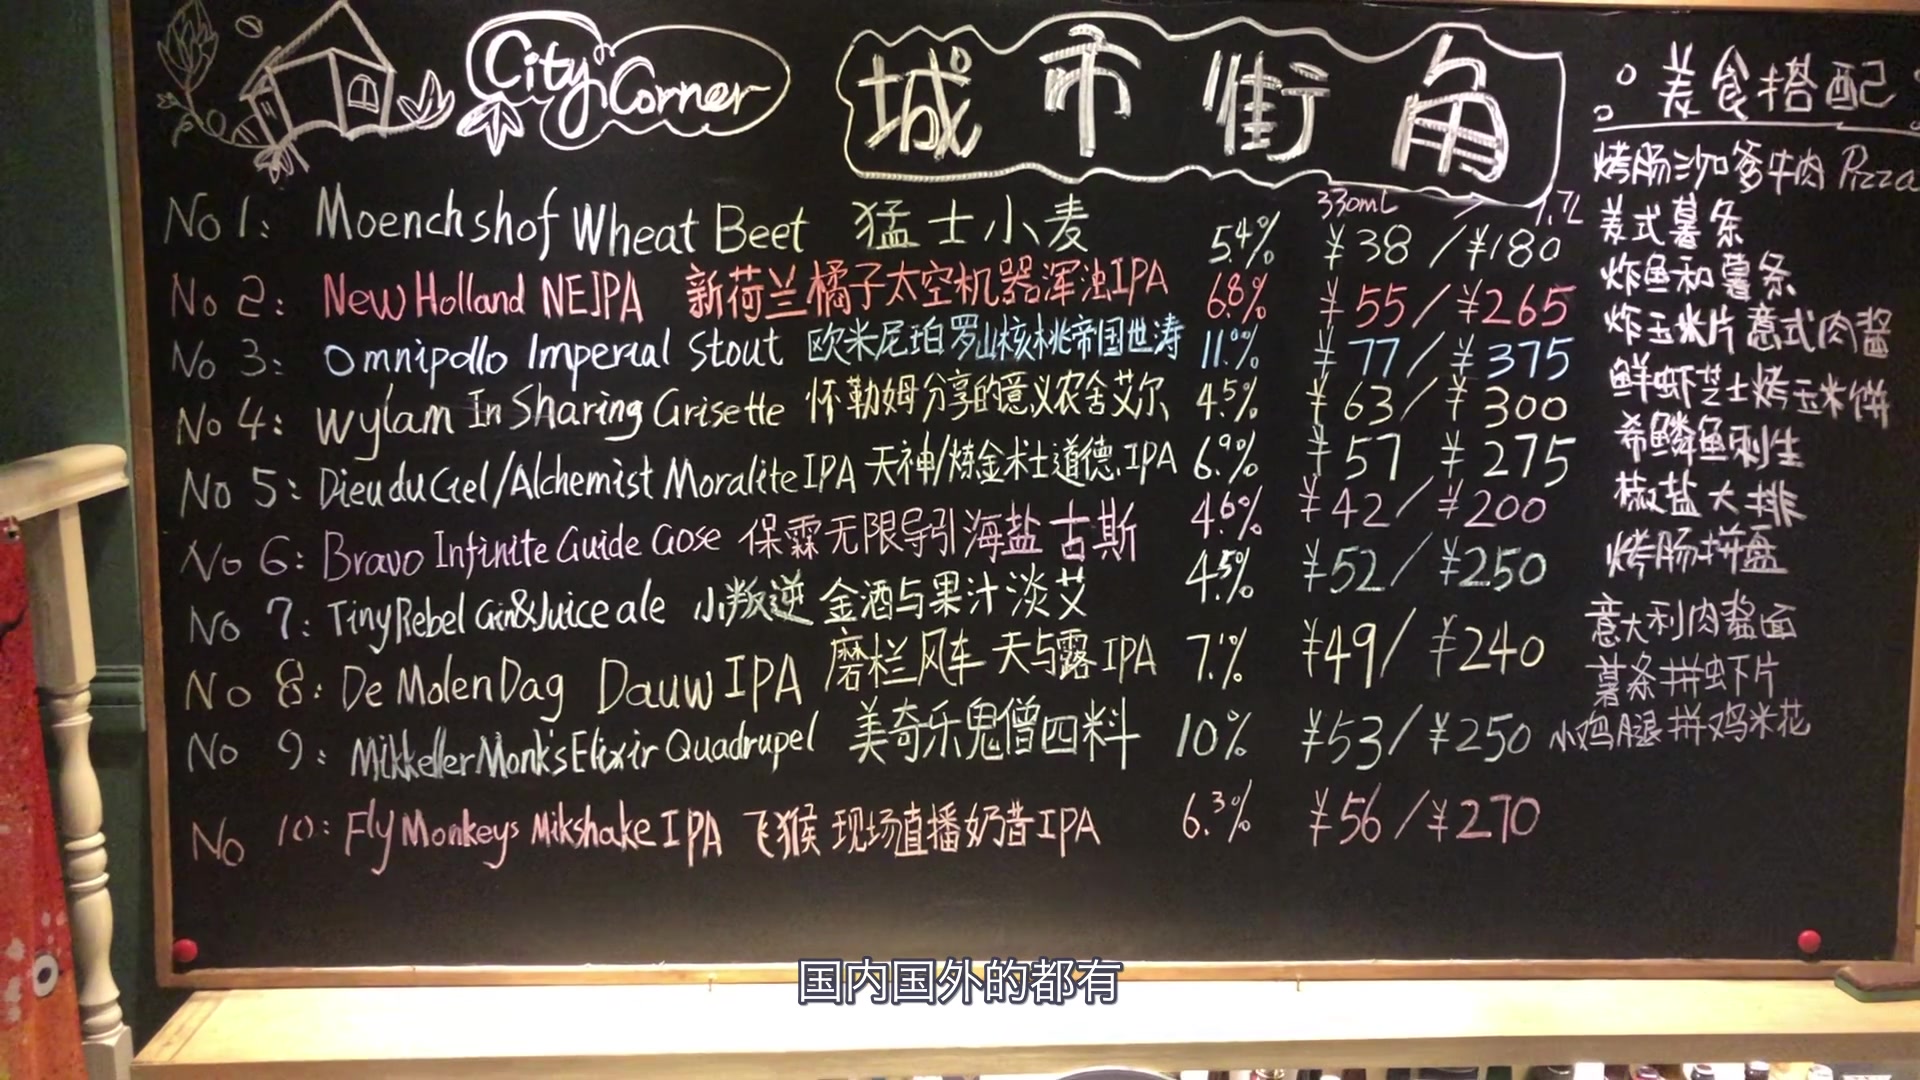 City Corner
城市街角
330mL / 1.7L
No 1: Moenchshof Wheat Beet 猛士小麦 5.4% ¥38/¥180
No 2: New Holland NEIPA 新荷兰橘子太空机器浑浊IPA 6.8% ¥55/¥265
No 3: Omnipollo Imperial Stout 欧米尼珀罗山核桃帝国世涛 11.0% ¥77/¥375
No 4: Wylam In Sharing Grisette 怀勒姆分享的意义农舍艾尔 4.5% ¥63/¥300
No 5: Dieu du Ciel/Alchemist Moralite IPA 天神/炼金术士道德IPA 6.9% ¥57/¥275
No 6: Bravo Infinite Guide Gose 保霖无限导引海盐古斯 4.6% ¥42/¥200
No 7: Tiny Rebel Gin&Juice ale 小叛逆金酒与果汁淡艾 4.5% ¥52/¥250
No 8: De Molen Dag Dauw IPA 磨栏风车天与露IPA 7.1% ¥49/¥240
No 9: Mikkeller Monk's Elixir Quadrupel 美奇乐鬼僧四料 10% ¥53/¥250
No 10: Fly Monkeys Mikshake IPA 飞猴现场直播奶昔IPA 6.3% ¥56/¥270
美食搭配
烤肠沙爹牛肉Pizza
美式薯条
炸鱼和薯条
炸玉米片意式肉酱
鲜虾芝士烤玉米饼
希鳞鱼刺生
椒盐大排
烤肠拼盘
意大利肉酱面
薯条拼虾片
小鸡腿拼鸡米花
国内国外的都有